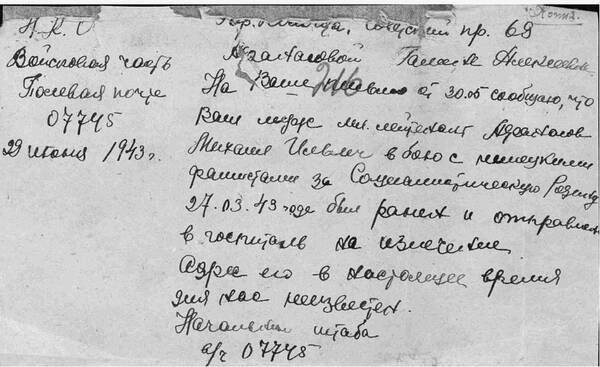 Копия.
Н.К.О
Войсковая часть
Полевая почта
07745
29 июня 1943 г.
пр. 69
Галине Алексеевне
216
На Ваше от 30.05 сообщаю, что
Ваш муж мл. лейтенант
Михаил в бою с немецкими
фашистами за Социалистическую Родину
27.03.43 года был ранен и отправлен
в госпиталь на излечение.
Адрес его в настоящее время
для нас неизвестен.
Начальник штаба
в/ч 07745